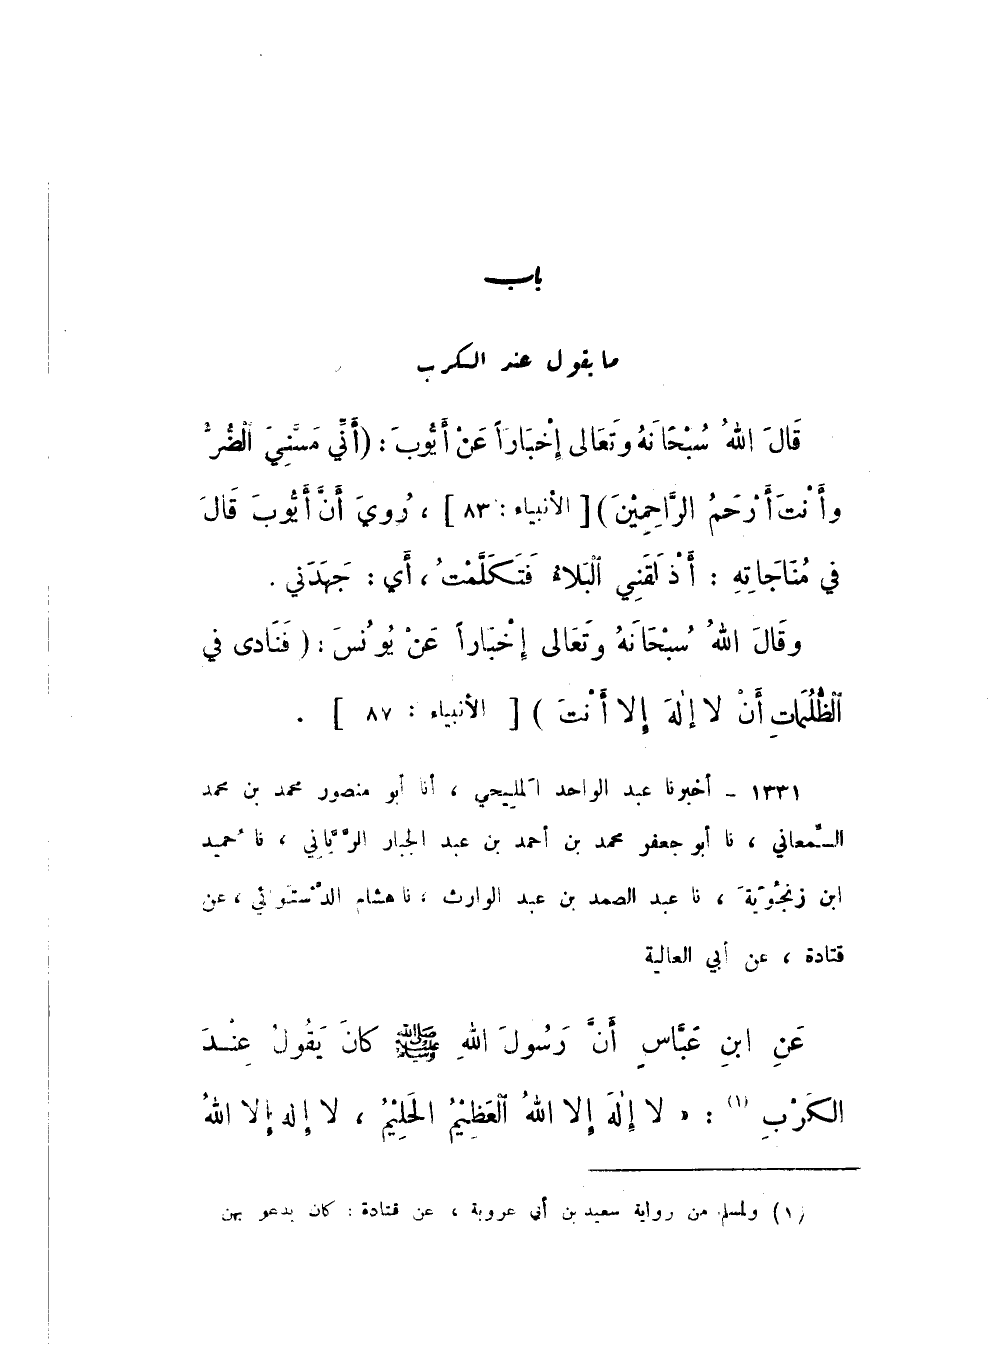 باب
ما يقول عند الكرب
قَالَ اللهُ سُبْحَانَهُ وتَعَالى إِخْبَاراً عَنْ أَيُّوبَ : (أَنِّي مَسَّنِيَ الضُّرُّ
وأَنْتَ أَرْحَمُ الرَّاحِمِيْنَ) [ الأنبياء : ٨٣ ] ، رُويَ أَنَّ أَيُّوبَ قَالَ
في مُنَاجَاتِهِ : أَذْلَقَنِي الْبَلاءُ فَتَكَلَّمْتُ ، أَي : جَهَدَني .
وقَالَ اللهُ سُبْحَانَهُ وتَعَالى إِخْبَاراً عَنْ يُونُسَ : ( فَنَادى في
الظُّلُمَاتِ أَنْ لا إِلٰهَ إِلا أَنْتَ ) [ الأنبياء : ٨٧ ] .
١٣٣١ – أخبرنا عبد الواحد المليحي ، أنا أبو منصور محمد بن محمد
السَّمعاني ، نا أبو جعفر محمد بن أحمد بن عبد الجبار الرَّيَّاني ، نا حُميد
ابن زنجُوَيةَ ، نا عبد الصمد بن عبد الوارث ، نا هشام الدَّسْتَوائي ، عن
قتادة ، عن أبي العالية
عَنِ ابنِ عَبَّاسٍ أَنَّ رَسُولَ اللهِ ﷺ كانَ يَقُولُ عِنْدَ
الكَرْبِ (١) : « لا إِلٰهَ إِلا اللهُ الْعَظِيْمُ الحَلِيْمُ ، لا إِله إِلا اللهُ
(١) ولمسلم من رواية سعيد بن أبي عروبة ، عن قتادة : كان يدعو بهن